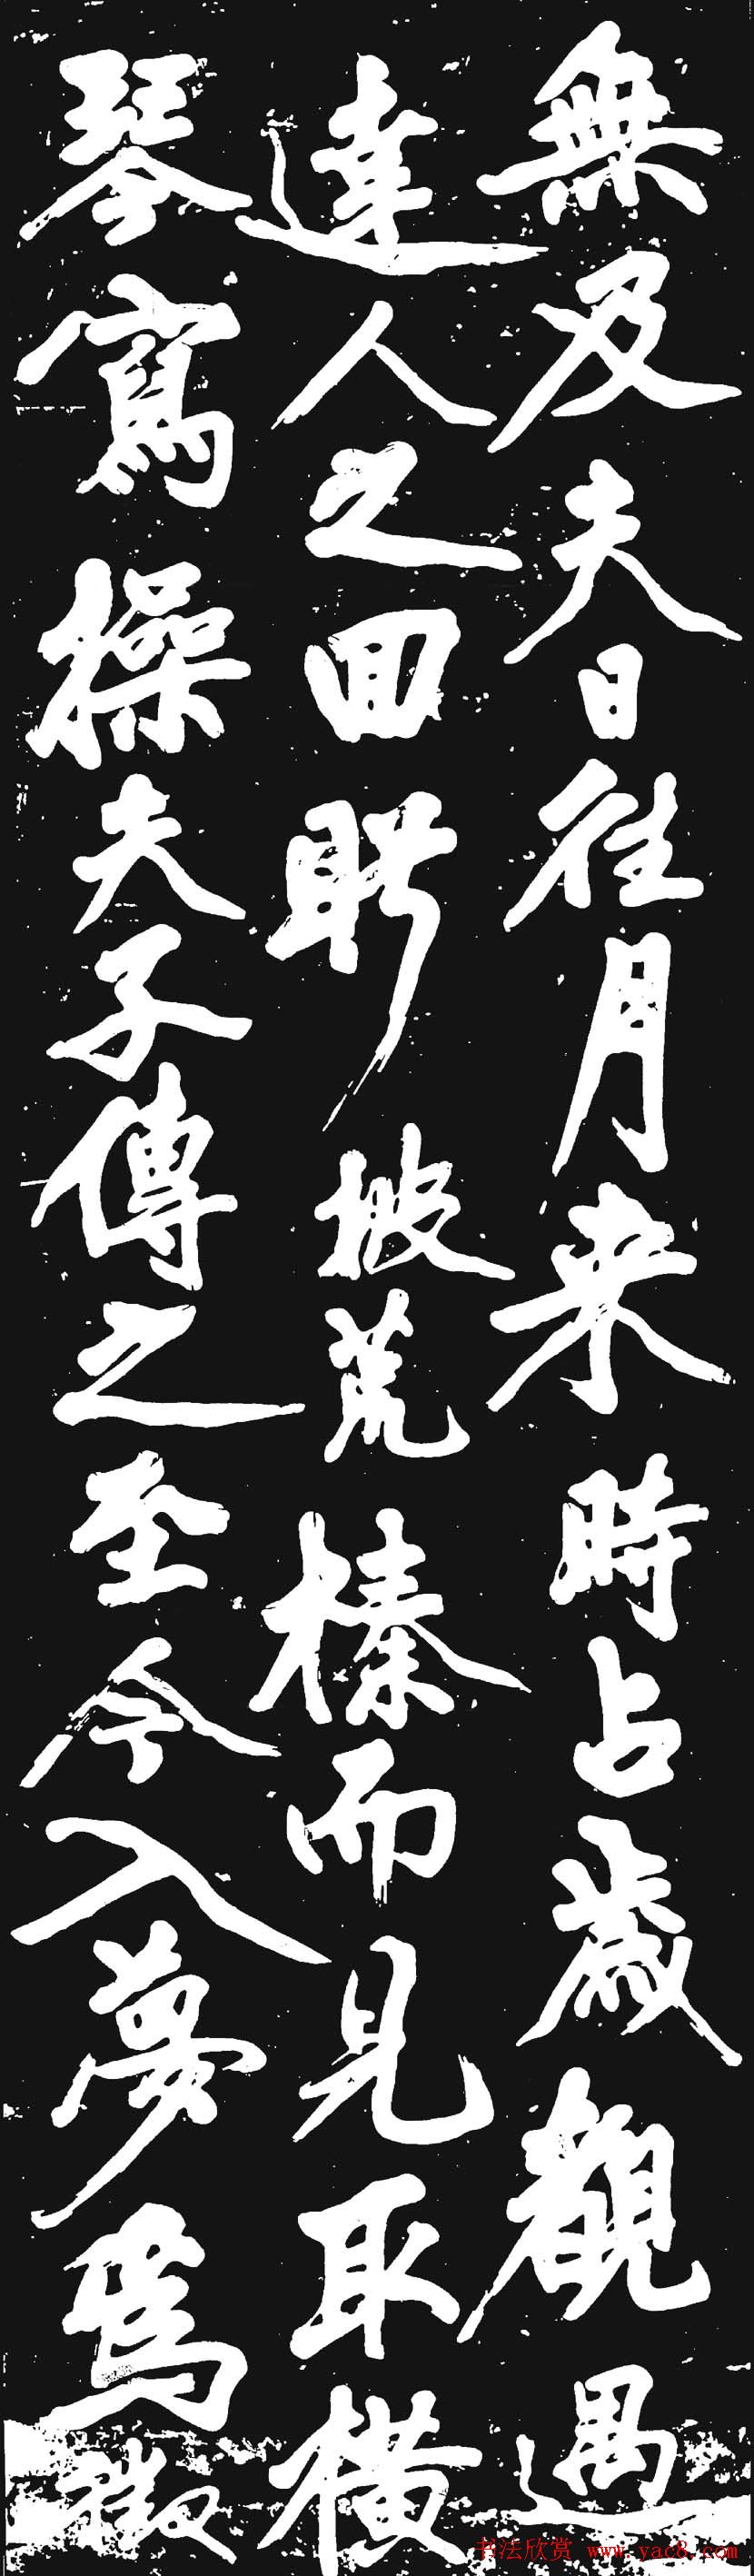 無及夫日往月来時占歲觀遇
達人之回眄披荒榛而見取横
琴寫操夫子傳之至今入夢為徵
书法欣赏 www.yac8.com